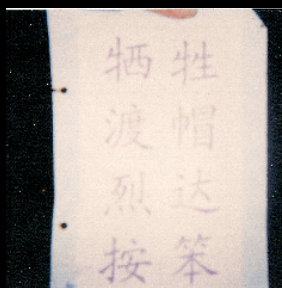 牺牲
渡帽
烈达
按笨